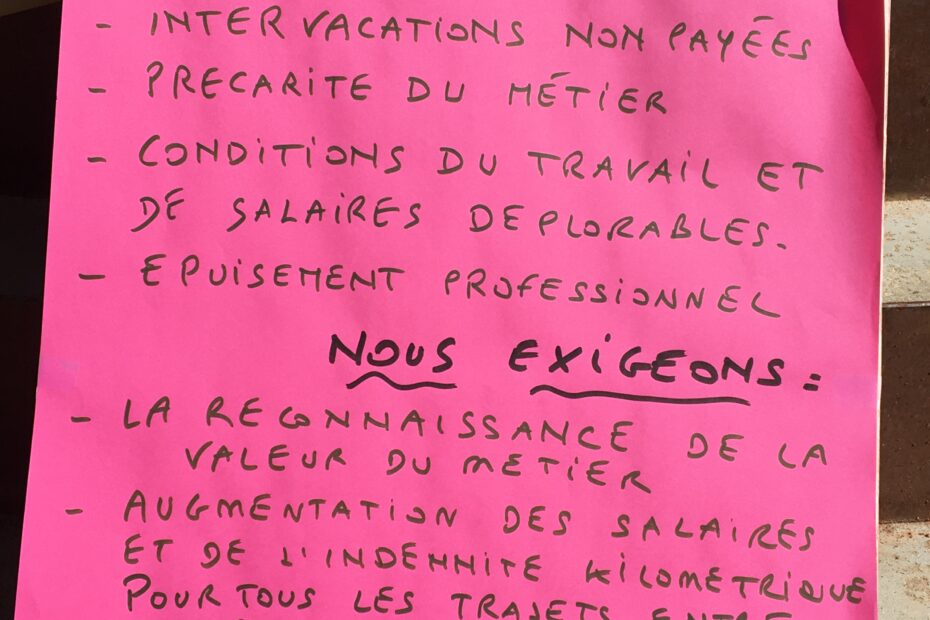 - INTERVACATIONS NON PAYÉES
- PRECARITE DU MÉTIER
- CONDITIONS DU TRAVAIL ET
DE SALAIRES DEPLORABLES.
- EPUISEMENT PROFESSIONNEL
NOUS EXIGEONS :
- LA RECONNAISSANCE DE LA
VALEUR DU METIER
- AUGMENTATION DES SALAIRES
ET DE L'INDEMNITE KILOMETRIQUE
POUR TOUS LES TRAJETS ENTRE